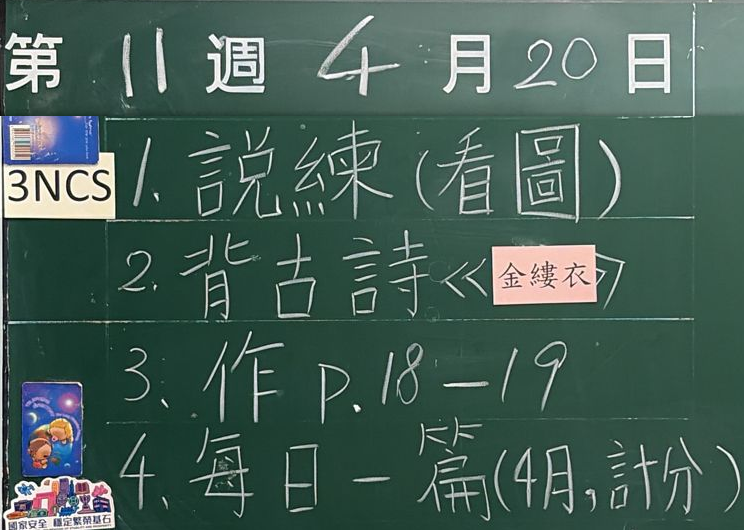 第 11 週 4 月 20 日
3NCS
1. 說練(看圖)
2. 背古詩《金縷衣》
3. 作 p.18-19
4. 每日一篇(4月,計分)
國家安全 穩定繁榮基石